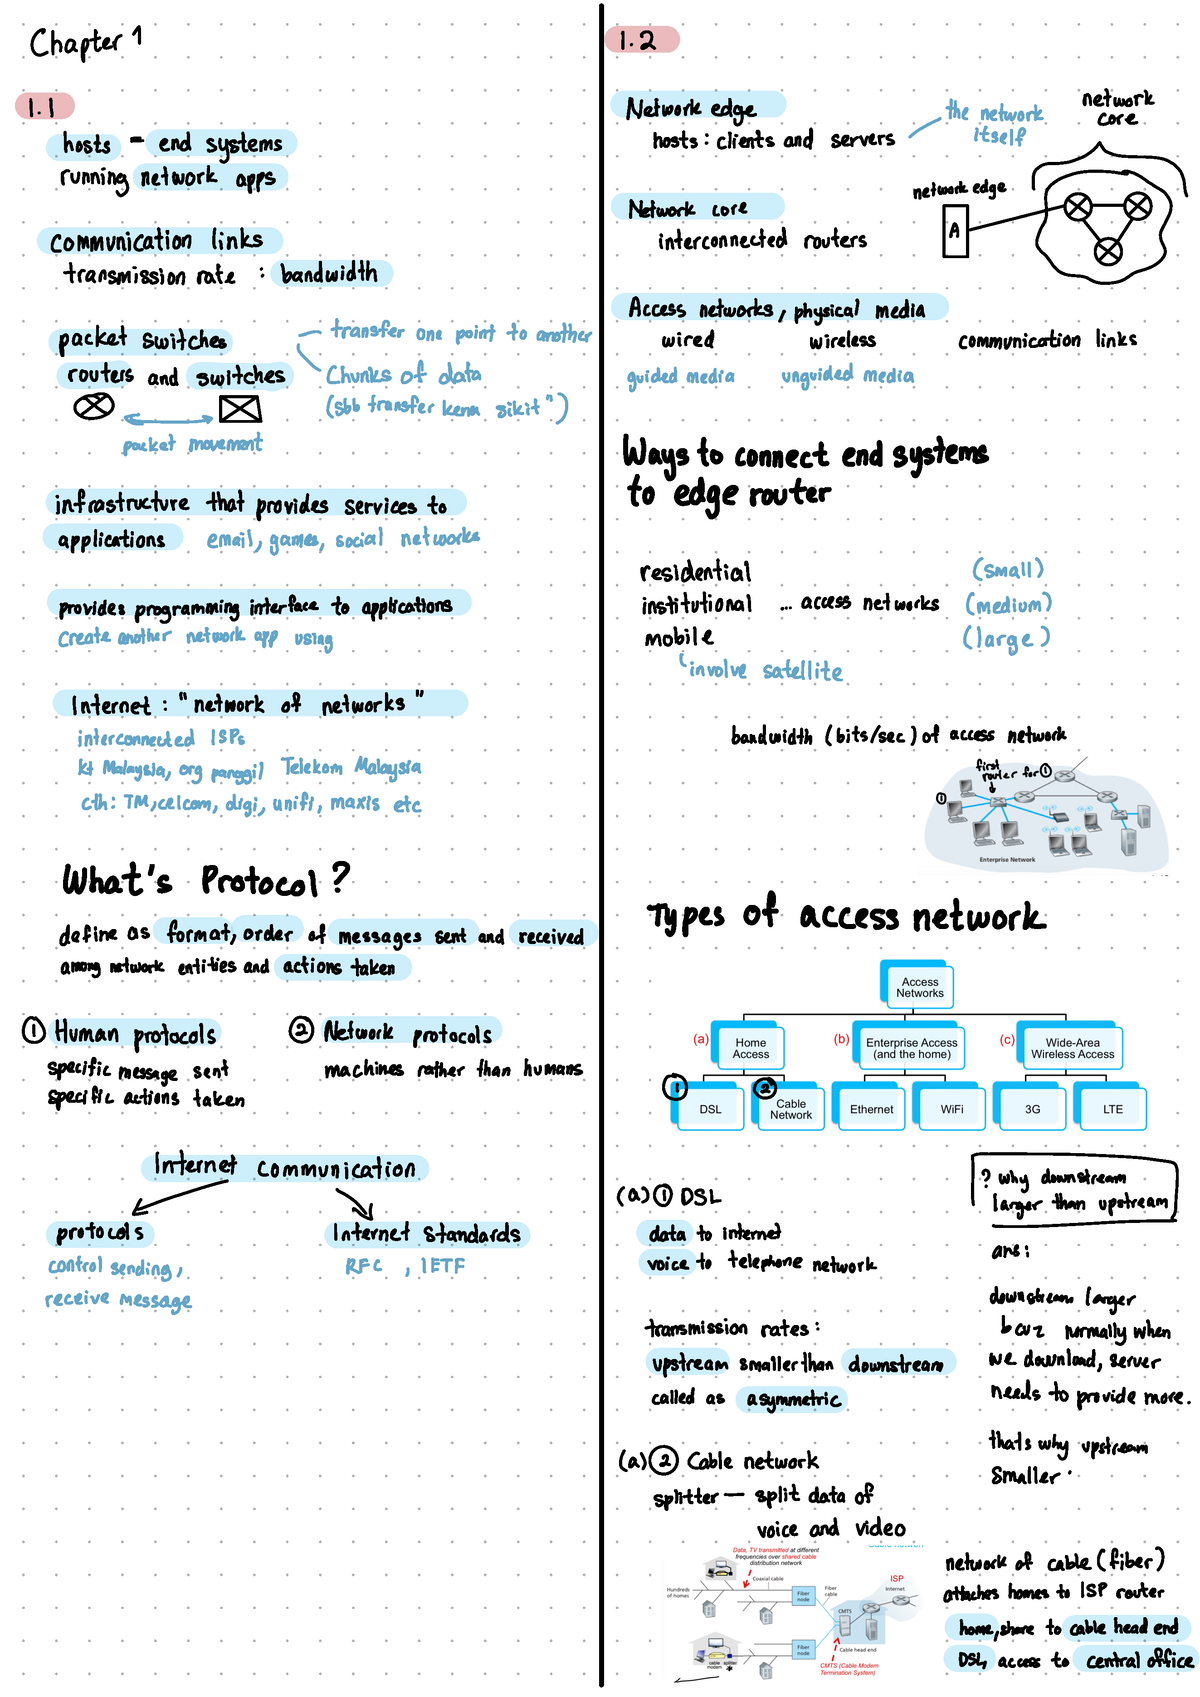 Chapter 1
1.1
hosts - end systems
running network apps
communication links
transmission rate : bandwidth
packet switches
routers and switches
transfer one point to another
Chunks of data
(sbb transfer kena sikit")
packet movement
infrastructure that provides services to
applications email, games, social networks
provides programming interface to applications
create another network app using
Internet : "network of networks"
interconnected ISPs
kt Malaysia, org panggil Telekom Malaysia
cth: TM, celcom, digi, unifi, maxis etc
What's Protocol?
define as format, order of messages sent and received
among network entities and actions taken
① Human protocols
specific message sent
specific actions taken
② Network protocols
machines rather than humans
Internet communication
protocols
control sending,
receive message
Internet Standards
RFC , IETF
1.2
Network edge
hosts : clients and servers
the network
itself
network
core
network edge
A
Network core
interconnected routers
Access networks, physical media
wired wireless communication links
guided media unguided media
Ways to connect end systems
to edge router
residential (small)
institutional ... access networks (medium)
mobile (large)
involve satellite
bandwidth (bits/sec) of access network
first
router for ①
①
Enterprise Network
Types of access network
Access
Networks
(a) Home
Access
(b) Enterprise Access
(and the home)
(c) Wide-Area
Wireless Access
① DSL
② Cable
Network
Ethernet
WiFi
3G
LTE
(a) ① DSL
data to internet
voice to telephone network
transmission rates :
upstream smaller than downstream
called as asymmetric
? why downstream
larger than upstream
ans:
downstream larger
bcuz normally when
we download, server
needs to provide more.
thats why upstream
smaller.
(a) ② Cable network
splitter — split data of
voice and video
Data, TV transmitted at different
frequencies over shared cable
distribution network
Hundreds
of homes
Coaxial cable
Fiber
node
Fiber
cable
ISP
Internet
CMTS
Cable head end
Fiber
node
cable
modem
splitter
CMTS (Cable Modem
Termination System)
network of cable (fiber)
attaches homes to ISP router
home, share to cable head end
DSL, access to central office